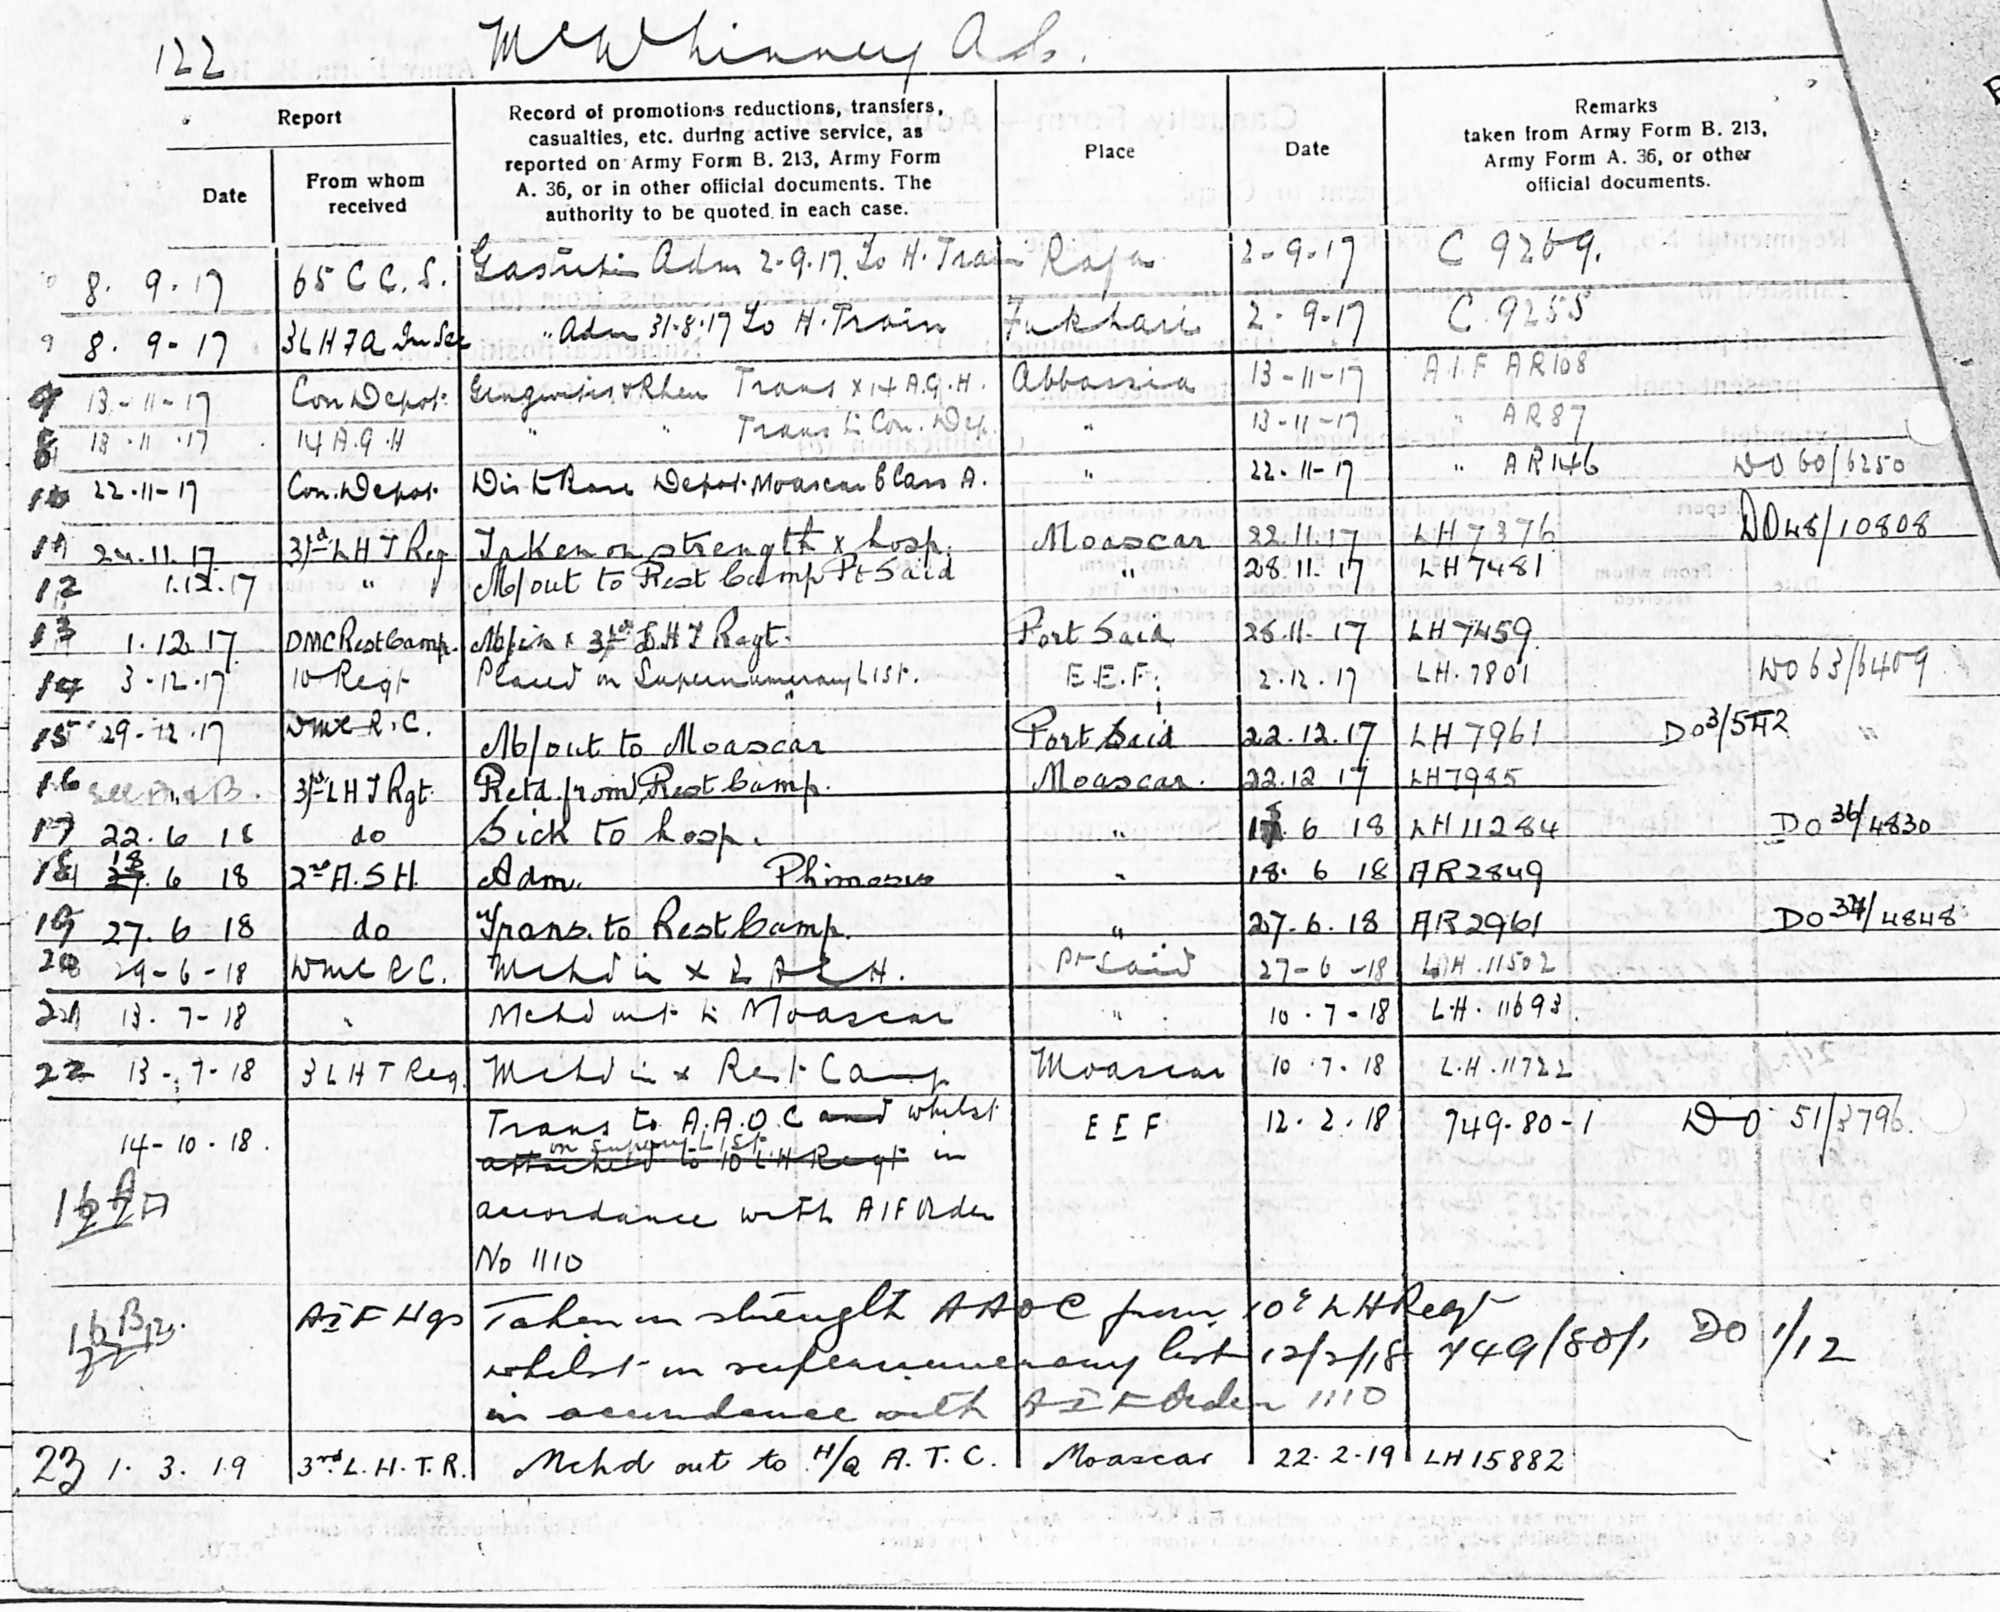 122 McWhinney A
Report
Date
From whom received
Record of promotions reductions, transfers, casualties, etc. during active service, as reported on Army Form B. 213, Army Form A. 36, or in other official documents. The authority to be quoted in each case.
Place
Date
Remarks taken from Army Form B. 213, Army Form A. 36, or other official documents.
8. 9. 17 65 C C. S. Gastritis Adm 2-9-17. To H. Train Rafa 2-9-17 C 9269.
8. 9-17 3LHFA " Adm 31-8-17 To H. Train Fukhari 2-9-17 C 9255
9 13-11-17 Con Depot Gingivitis & Rheu Trans x 14 A.G.H. Abbassia 13-11-17 A.I.F AR108
8 13.11.17 14 A.G.H " " Trans to Con. Dep. " 13-11-17 " AR87
10 22.11-17 Con. Depot Dis to Depot. Moascar Class A. " 22-11-17 " AR146 DO 60/6250
11 24.11.17 3rd LH T Reg Taken on strength x hosp. Moascar 22.11.17 LH 7376 DO48/10808
12 1.12.17 " M/out to Rest Camp Pt Said " 28.11.17 LH7481
13 1.12.17 DMC Rest Camp. M/in x 3rd LHT Regt. Port Said 28.11.17 LH7459
14 3-12-17 10 Regt Placed on Supernumerary List. E.E.F. 2.12.17 LH.7801 DO 63/6409
15 29-12-17 DMC R.C. M/out to Moascar Port Said 22.12.17 LH 7961 DO 3/542
16 See A & B. 3rd LHT Rgt. Retd. from Rest Camp. Moascar. 22.12.17 LH7985
17 22.6 18 do Sick to hosp. " 17.6 18 LH11284 DO 36/4830
18 27.6 18 2nd A.S.H. Adm. Phimosis " 18.6 18 AR2849
19 27.6 18 do Trans. to Rest Camp. " 27.6.18 AR2961 DO 37/4848
20 29-6-18 DMC R C. Mchd in x 2 A S H. Pt Said 27-6-18 LH.11502
21 13.7-18 " Mchd out to Moascar " 10.7-18 L.H. 11693
22 13-7-18 3 L H T Reg. Mchd in x Rest Camp Moascar 10.7.18 L.H.11722
14-10-18. Trans to A.A.O.C and whilst E E F 12.2.18 749-80-1 DO 51/3796
on Supny List
attached to 10 L.H Regt in
16 A accordance with AIF Order
No 1110
16 B AIF Hqs Taken on strength AAOC from 10th LH Regt
whilst on supernumerary list 12/2/18 749/80/1 DO 1/12
in accordance with AIF Order 1110
23 1. 3. 19 3rd L.H.T.R. Mchd out to H/Q A.T.C. Moascar 22.2.19 LH15882